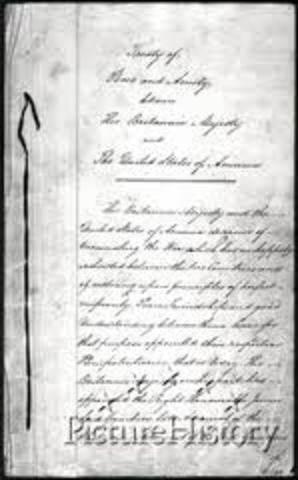 Treaty of
Peace and Amity
between
His Britannic Majesty
and
The United States of America
His Britannic Majesty and the
United States of America desirous of
terminating the War which has unhappily
subsisted between the two Countries and
of restoring upon principles of perfect
reciprocity, Peace, Friendship, and good
Understanding between them, have for
that purpose appointed their respective
Plenipotentiaries, that is to say, His
Britannic Majesty on His part has
appointed the Right Honourable James
PictureHistory